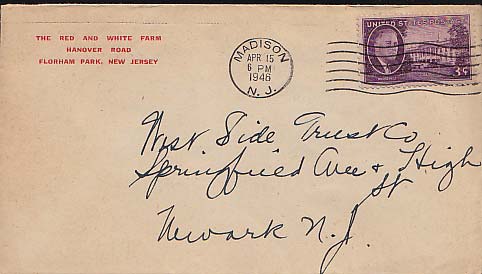 THE RED AND WHITE FARM
HANOVER ROAD
FLORHAM PARK, NEW JERSEY
MADISON
APR 15
6 PM
1946
N. J.
UNITED STATES POSTAGE
3¢
West Side Trust Co
Springfield Ave & High
St
Newark N. J.